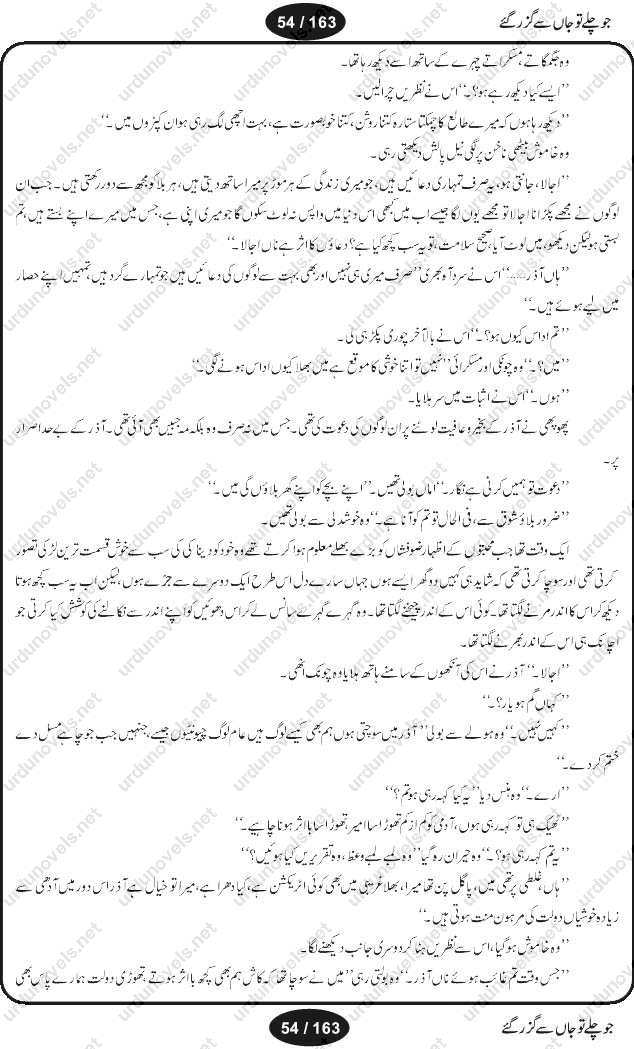 54 / 163
جو چلے تو جاں سے گزر گئے
وہ جگمگاتے، مسکراتے چہرے کے ساتھ اسے دیکھ رہا تھا۔
’’ایسے کیا دیکھ رہے ہو؟‘‘ اس نے نظریں چرالیں۔
’’دیکھ رہا ہوں کہ میرے طالع کا چمکتا ستارہ کتنا روشن، کتنا خوبصورت ہے، بہت اچھی لگ رہی ہو ان کپڑوں میں۔‘‘
وہ خاموش بیٹھی ناخن پر لگی نیل پالش دیکھتی رہی۔
’’اجالا، جانتی ہو، یہ صرف تمہاری دعائیں ہیں، جو میری زندگی کے ہر موڑ پر میرا ساتھ دیتی ہیں، ہر بلا کو مجھ سے دور رکھتی ہیں۔ جب ان
لوگوں نے مجھے پکڑا نا اجالا تو مجھے یوں لگا جیسے اب میں کبھی اس دنیا میں واپس نہ لوٹ سکوں گا جو میری اپنی ہے، جس میں میرے اپنے بستے ہیں، تم
بستی ہو لیکن دیکھو، میں لوٹ آیا، صحیح سلامت، تو یہ سب کچھ کیا ہے؟ دعاؤں کا اثر ہے ناں اجالا۔‘‘
’’ہاں آذر.....‘‘ اس نے سرد آہ بھری ’’صرف میری ہی نہیں اور بھی بہت سے لوگوں کی دعائیں ہیں جو تمہارے گرد ہیں، تمہیں اپنے حصار
میں لیے ہوئے ہیں۔‘‘
’’تم اداس کیوں ہو؟‘‘ اس نے بالآخر چوری پکڑ ہی لی۔
’’میں؟‘‘ وہ چونکی اور مسکرائی ’’نہیں تو اتنا خوشی کا موقع ہے میں بھلا کیوں اداس ہونے لگی۔‘‘
’’ہوں۔‘‘ اس نے اثبات میں سر ہلایا۔
پھوپھی نے آذر کے بخیر و عافیت لوٹنے پر ان لوگوں کی دعوت کی تھی۔ جس میں نہ صرف وہ بلکہ مہ جبیں بھی آئی تھی۔ آذر کے بے حد اصرار
پر۔
’’دعوت تو ہمیں کرنی ہے نگار۔‘‘ اماں بولی تھیں۔ ’’اپنے بچے کو اپنے گھر بلاؤں گی میں۔‘‘
’’ضرور بلاؤ شوق سے، فی الحال تو تم کو آنا ہے۔‘‘ وہ خوشدلی سے بولی تھیں۔
ایک وقت تھا جب محبتوں کے اظہار ضوفشاں کو بڑے بھلے معلوم ہوا کرتے تھے وہ خود کو دنیا کی سب سے خوش قسمت ترین لڑکی تصور
کرتی تھی اور سوچا کرتی تھی کہ شاید ہی کہیں دو گھر ایسے ہوں جہاں سارے دل اس طرح ایک دوسرے سے جڑے ہوں، لیکن اب یہ سب کچھ ہوتا
دیکھ کر اس کا اندر مرنے لگتا تھا۔ کوئی اس کے اندر چیخنے لگتا تھا۔ وہ گہرے گہرے سانس لے کر اس دھوئیں کو اپنے اندر سے نکالنے کی کوشش کیا کرتی جو
اچانک ہی اس کے اندر بھرنے لگتا تھا۔
’’اجالا۔‘‘ آذر نے اس کی آنکھوں کے سامنے ہاتھ ہلایا وہ چونک اٹھی۔
’’کہاں گم ہو یار؟‘‘
’’کہیں نہیں۔‘‘ وہ ہولے سے بولی ’’آذر میں سوچتی ہوں ہم بھی کیسے لوگ ہیں عام لوگ چیونٹیوں جیسے، جنہیں جب جو چاہے مسل دے
ختم کر دے۔‘‘
’’ارے۔‘‘ وہ ہنس دیا ’’یہ کیا کہہ رہی ہو تم؟‘‘
’’ٹھیک ہی تو کہہ رہی ہوں، آدمی کو کم از کم تھوڑا سا امیر، تھوڑا سا با اثر ہونا چاہیے۔‘‘
’’یہ تم کہہ رہی ہو؟‘‘ وہ حیران رہ گیا ’’وہ لمبے لمبے وعظ، وہ تقریریں کیا ہوئیں؟‘‘
’’ہاں، غلطی پر تھی میں، پاگل پن تھا میرا، بھلا غریبی میں بھی کوئی اٹریکشن ہے، کیا دھرا ہے، میرا تو خیال ہے آذر اس دور میں آدھی سے
زیادہ خوشیاں دولت کی مرہون منت ہوتی ہیں۔‘‘
وہ خاموش ہو گیا، اس سے نظریں ہٹا کر دوسری جانب دیکھنے لگا۔
’’جس وقت تم غائب ہوئے ناں آذر۔‘‘ وہ بولتی رہی ’’میں نے سوچا تھا کہ کاش ہم بھی کچھ با اثر ہوتے، تھوڑی دولت ہمارے پاس بھی
54 / 163
جو چلے تو جاں سے گزر گئے
urdunovels.net